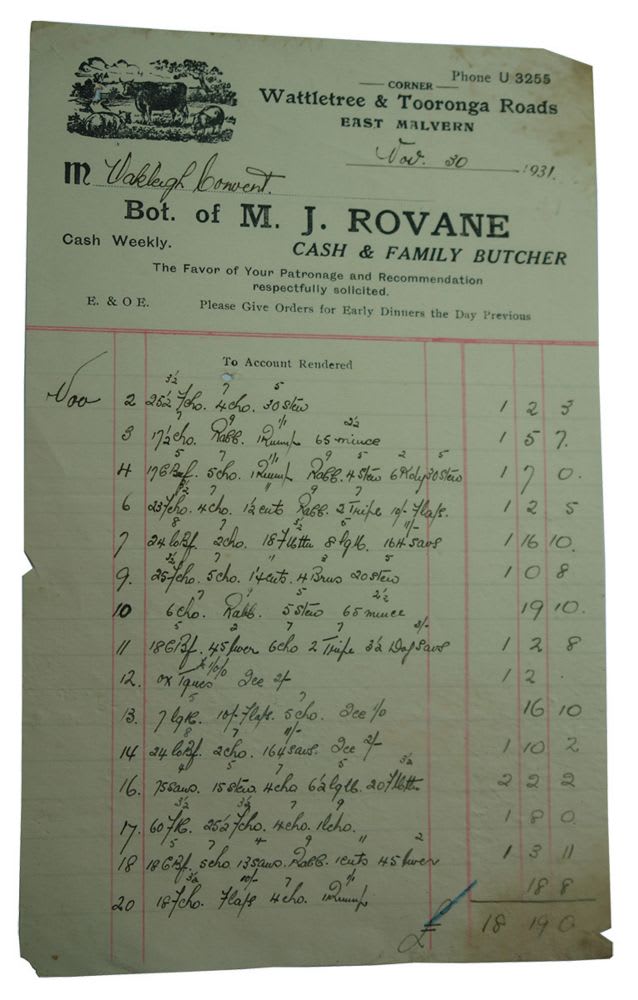 Phone U 3255
CORNER
Wattletree & Tooronga Roads
EAST MALVERN
Nov. 30 1931.
M Oakleigh Convent.
Bot. of M. J. ROVANE
Cash Weekly. CASH & FAMILY BUTCHER
The Favor of Your Patronage and Recommendation
respectfully solicited.
E. & O E. Please Give Orders for Early Dinners the Day Previous
To Account Rendered
3½ 7 5
Nov 2 25½ Fcho. 4 cho. 30 stew 1 2 3
7 9 1/1 2½
3 17½ cho. Rabb. 1 Rump 65 mince 1 5 7.
5 7 1/1 9 5 2 5
4 17 C Bf. 5 cho. 1 Rump Rabb. 4 stew 6 Kdny 30 stew 1 7 0.
7 9 7
6 23 Fcho. 4 cho. 1½ cuts Rabb. 2 Tripe 10/- Flaps. 1 2 5
8 7 3½ 5 11/-
7 24 Co Bf. 2 cho. 18 F 8 lg lb. 164 savs 1 16 10.
3½ 7 5
9. 25 Fcho. 5 cho. 4 20 stew 1 0 8
7 9 5 2½
10 6 cho. Rabb. 5 stew 65 mince 19 10.
5 2 7 7 2/-
11 18 C Bf. 45 liver 6 cho 2 Tripe 3½ Dog savs 1 2 8
12. Ox Tgues Ice 2/- 1 2 .
5 7
13. 7 lg lb. 10/- Flaps. 5 cho. Ice 1/0 16 10
8 7 11/-
14 24 Co Bf. 2 cho. 164 savs. Ice 2/- 1 10 2
4 5 7 5 3½
16. 75 savs. 15 stew. 4 cho 6½ lg lb. 20 F 2 2 2
3½ 3½ 7 9
17. 60 F 25½ Fcho. 4 cho. 1 cho. 1 8 0
5 7 4 9 11 2
18 18 C Bf. 5 cho. 13 savs. Rabb. 1 cuts 45 liver 1 3 11
3½ 10/- 7 1/1
20 18 Fcho. Flaps 4 cho. 1 Rump 18 8
£ 18 19 0